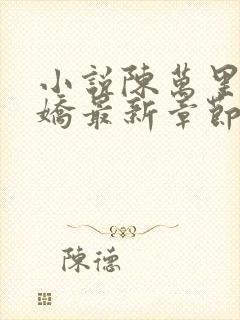 小說陳萬里
嬌最新章節
陳德